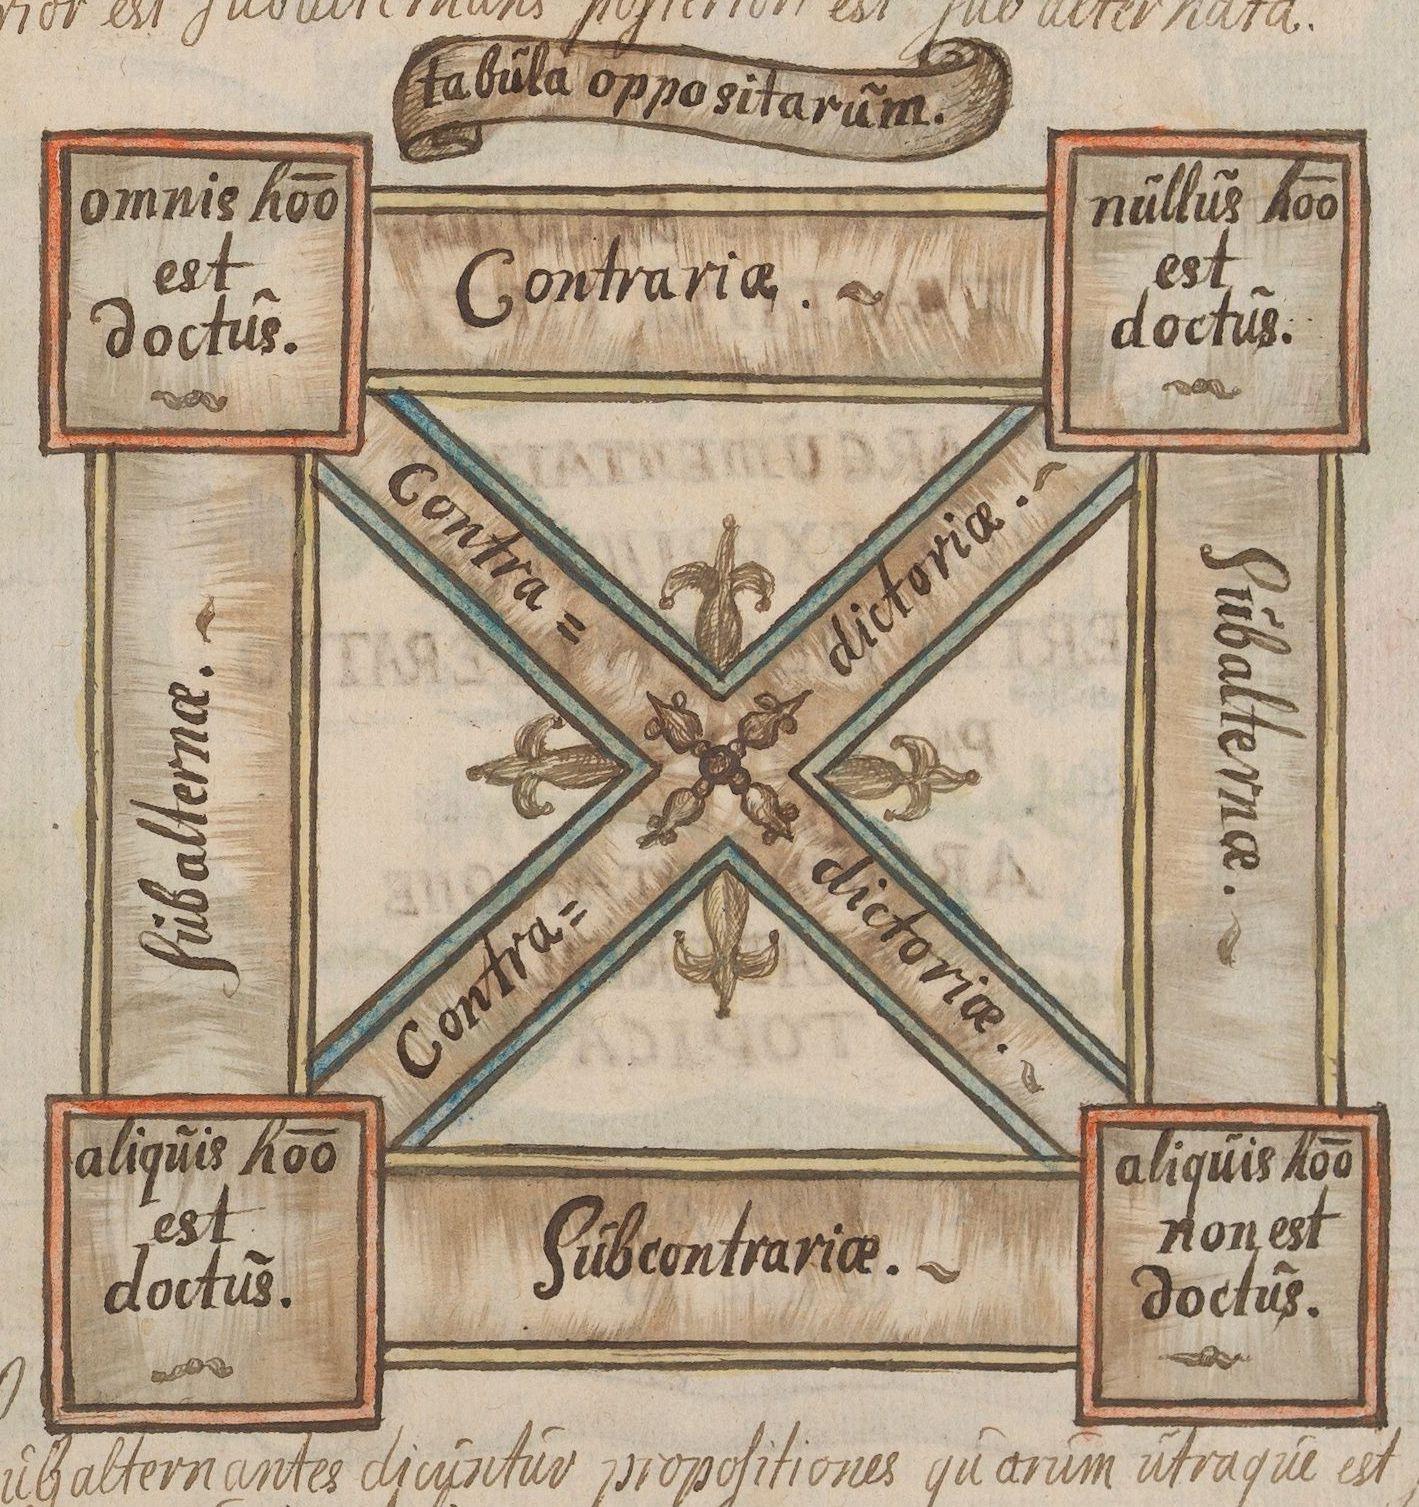 rior est subalternans posterior est subalternata.
tabũla oppositarũm.
omnis hōō
est
doctũs.
Contrariæ.
nũllũs hōō
est
doctũs.
Contra=
dictoriæ.
Sũbalternæ.
Sũbalternæ.
Contra=
dictoriæ.
aliqũis hōō
est
doctũs.
Sũbcontrariæ.
aliqũis hōō
non est
doctũs.
ũbalternantes dicũntũr propositiones qũarũm ũtraqũe est